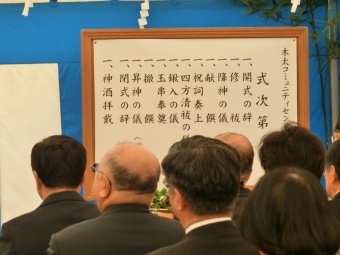 木太コミュニティセン
式次第
一、開式の辞
一、修祓
一、降神の儀
一、献饌
一、祝詞奏上
一、四方清祓の儀
一、鍬入の儀
一、玉串奉奠
一、撤饌
一、昇神の儀
一、閉式の辞
一、神酒拝戴